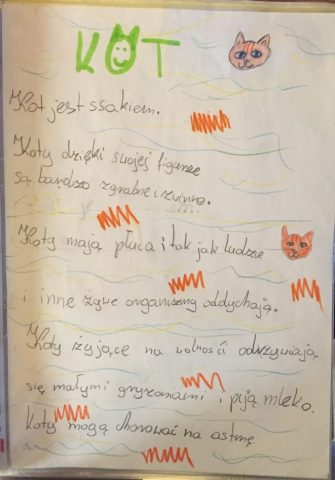 KOT
Kot jest ssakiem.
Koty dzięki swojej figurze
są bardzo zgrabne i zwinne.
Koty mają płuca i tak jak ludzie
i inne żywe organizmy oddychają.
Koty żyjące na wolności odżywiają
się małymi gryzoniami i piją mleko.
Koty mogą chorować na astmę